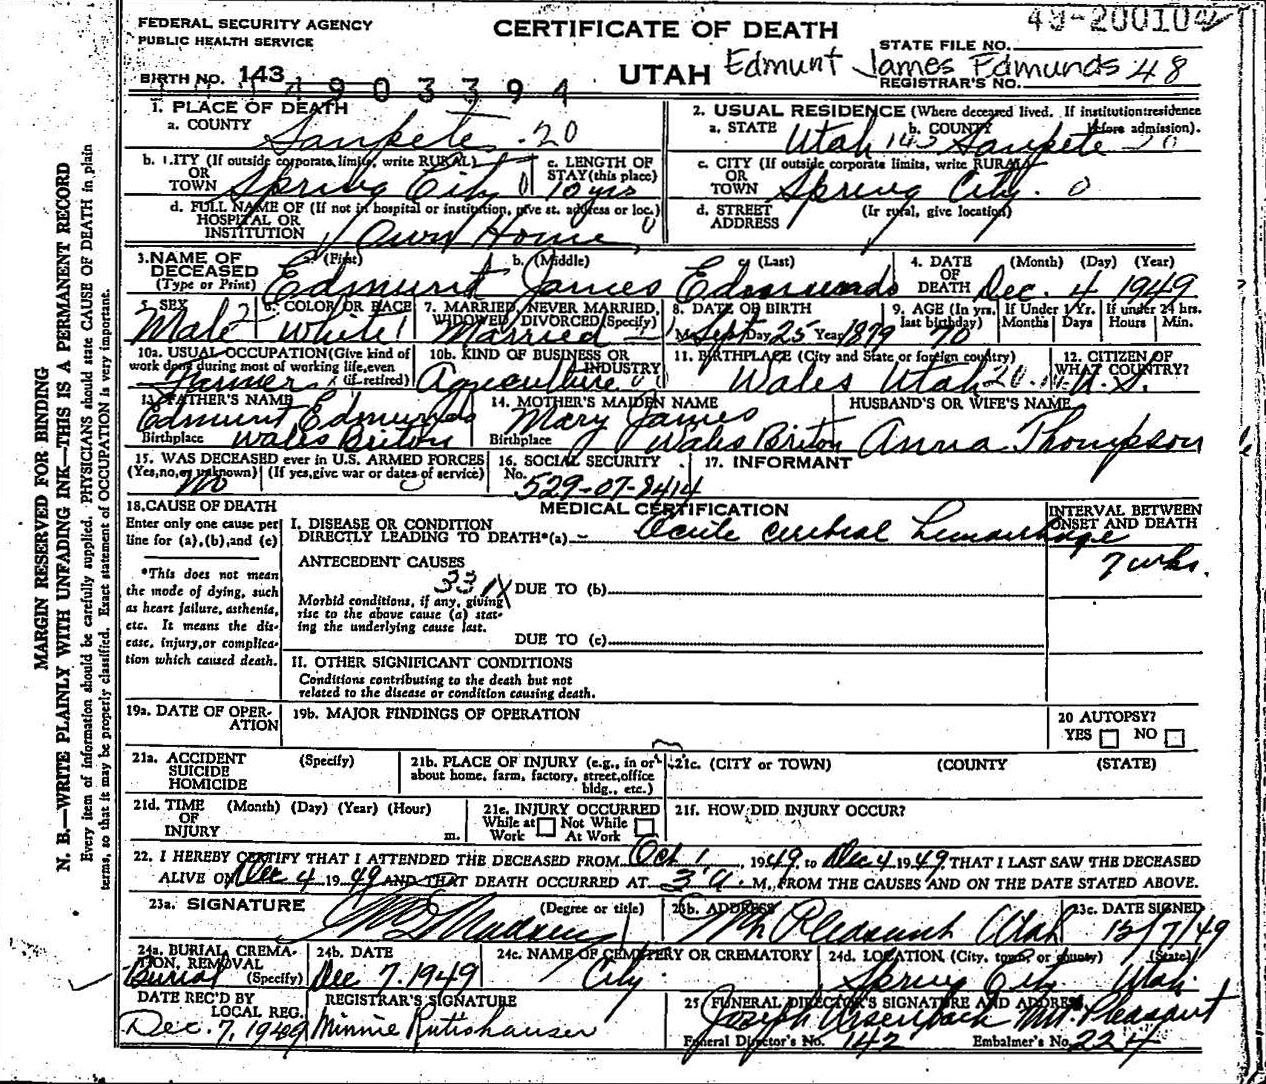 49-200104
FEDERAL SECURITY AGENCY
PUBLIC HEALTH SERVICE
CERTIFICATE OF DEATH
STATE FILE NO.
BIRTH NO. 143 4903394
UTAH Edmunt James Edmunds 48
REGISTRAR'S NO.
1. PLACE OF DEATH
a. COUNTY Sanpete 20
2. USUAL RESIDENCE (Where deceased lived. If institution:residence before admission).
a. STATE Utah 143 b. COUNTY Sanpete
b. CITY (If outside corporate limits, write RURAL) OR TOWN Spring City 0
c. LENGTH OF STAY (this place) 70 yrs
c. CITY (If outside corporate limits, write RURAL) OR TOWN Spring City. 0
d. FULL NAME OF (If not in hospital or institution, give st. address or loc.) HOSPITAL OR INSTITUTION Own Home
d. STREET ADDRESS (If rural, give location)
3. NAME OF DECEASED (Type or Print) a. (First) Edmunt b. (Middle) James c. (Last) Edmunds
4. DATE OF DEATH (Month) (Day) (Year) Dec. 4 1949
5. SEX Male
6. COLOR OR RACE White
7. MARRIED, NEVER MARRIED, WIDOWED, DIVORCED(Specify) Married
8. DATE OF BIRTH Sept Day 25 Year 1879
9. AGE (In yrs. last birthday) 70
If Under 1 Yr. Months Days
If under 24 hrs. Hours Min.
10a. USUAL OCCUPATION(Give kind of work done during most of working life, even if retired) Farmer
10b. KIND OF BUSINESS OR INDUSTRY Agriculture
11. BIRTHPLACE (City and State or foreign country) Wales Utah 20
12. CITIZEN OF WHAT COUNTRY? U.S.
13. FATHER'S NAME Edmunt Edmunds
Birthplace Wales Briton
14. MOTHER'S MAIDEN NAME Mary James
Birthplace Wales Briton
HUSBAND'S OR WIFE'S NAME Anna Thompson
15. WAS DECEASED ever in U.S. ARMED FORCES
(Yes, no, or unknown) (If yes, give war or dates of service) No
16. SOCIAL SECURITY No. 529-07-8414
17. INFORMANT
MEDICAL CERTIFICATION
18. CAUSE OF DEATH
Enter only one cause per line for (a), (b), and (c)
*This does not mean the mode of dying, such as heart failure, asthenia, etc. It means the disease, injury, or complication which caused death.
I. DISEASE OR CONDITION DIRECTLY LEADING TO DEATH*(a) Acute cerebral hemorrhage
INTERVAL BETWEEN ONSET AND DEATH
7 wks.
ANTECEDENT CAUSES
331X
DUE TO (b)
Morbid conditions, if any, giving rise to the above cause (a) stating the underlying cause last.
DUE TO (c)
II. OTHER SIGNIFICANT CONDITIONS
Conditions contributing to the death but not related to the disease or condition causing death.
19a. DATE OF OPERATION
19b. MAJOR FINDINGS OF OPERATION
20 AUTOPSY?
YES NO
21a. ACCIDENT SUICIDE HOMICIDE (Specify)
21b. PLACE OF INJURY (e.g., in or about home, farm, factory, street, office bldg., etc.)
21c. (CITY or TOWN) (COUNTY) (STATE)
21d. TIME OF INJURY (Month) (Day) (Year) (Hour) m.
21e. INJURY OCCURRED
While at Work Not While At Work
21f. HOW DID INJURY OCCUR?
22. I HEREBY CERTIFY THAT I ATTENDED THE DECEASED FROM Oct 1, 1949 to Dec 4 1949 THAT I LAST SAW THE DECEASED
ALIVE ON Dec 4 1949 AND THAT DEATH OCCURRED AT 3 a. M., FROM THE CAUSES AND ON THE DATE STATED ABOVE.
23a. SIGNATURE (Degree or title)
23b. ADDRESS Mt Pleasant Utah
23c. DATE SIGNED 12/7/49
24a. BURIAL, CREMATION, REMOVAL (Specify) Burial
24b. DATE Dec 7. 1949
24c. NAME OF CEMETERY OR CREMATORY City
24d. LOCATION (City, town, or county) (State) Spring City Utah
DATE REC'D BY LOCAL REG. Dec. 7, 1949
REGISTRAR'S SIGNATURE Minnie Rutishauser
25. FUNERAL DIRECTOR'S SIGNATURE AND ADDRESS Joseph Ursenbach Mt. Pleasant
Funeral Director's No. 142 Embalmer's No. 224
MARGIN RESERVED FOR BINDING
N. B.—WRITE PLAINLY WITH UNFADING INK—THIS IS A PERMANENT RECORD
Every item of information should be carefully supplied. PHYSICIANS should state CAUSE OF DEATH in plain
terms, so that it may be properly classified. Exact statement of OCCUPATION is very important.